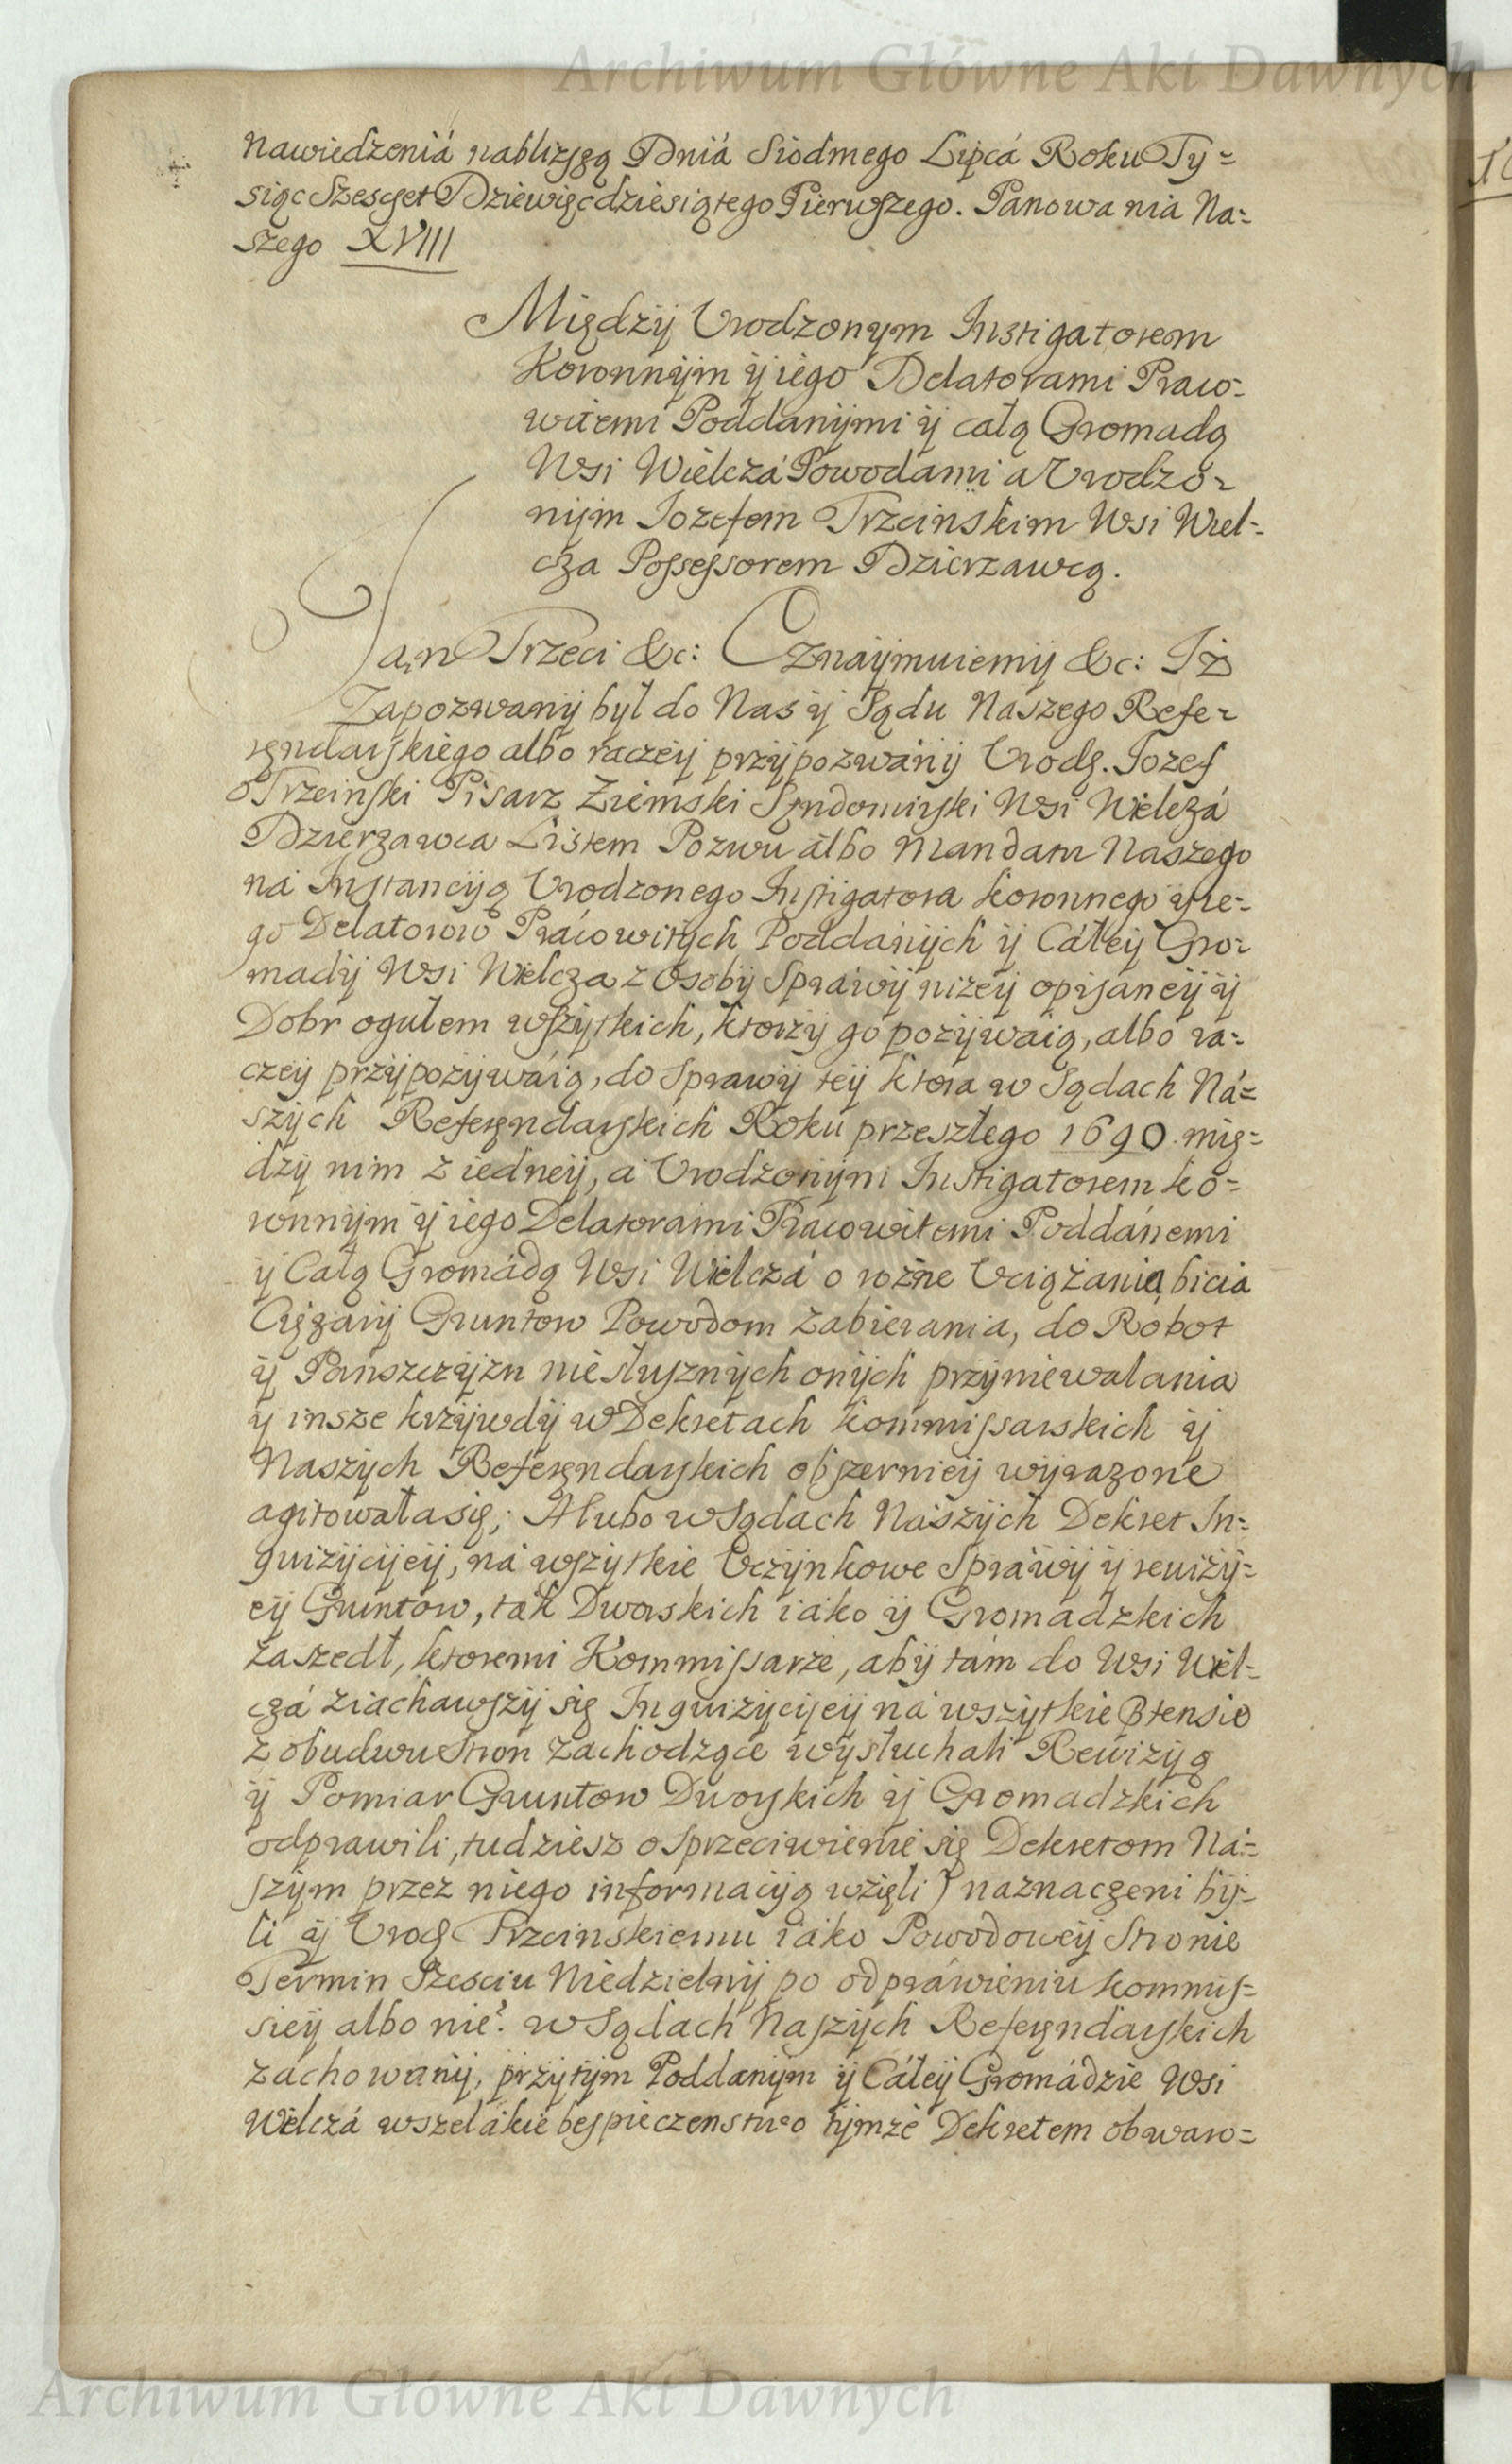 Archiwum Główne Akt Dawnych
nawiedzeniá nablizszą Dniá Siodmego Lipcá Roku Ty=
siąc Szescset Dziewięcdziesiątego Pierwszego. Panowania Na=
szego XVIII
Międzÿ Urodzonym Instigatorem
Koronnÿm ÿ iego Delatorami Praco=
witemi Poddanÿmi ÿ całą Gromadą
Wsi Wielczá Powodami a Urodzo=
nÿm Iozefem Trzcinskim Wsi Wiel=
cza Possessorem Dzierzawcą.
Jan Trzeci &c: Oznaÿmuiemÿ &c: Iż
Zapozwanÿ bÿł do Nas ÿ Sądu Naszego Refe=
rendarskiego albo raczeÿ przÿpozwánÿ Urodz. Iozef
Trzcinski Pisarz Ziemski Sendomirski Wsi Wielczá
Dzierzawca Listem Pozwu álbo Mandatu Naszego
ná Instancÿą Urodzonego Instigatora Koronnego ÿ ie=
go Delatorow Prácowitÿch Poddánÿch ÿ Cáłeÿ Gro=
madÿ Wsi Wielcza z Osobÿ Spráwÿ niżeÿ opisaneÿ ÿ
Dobr ogułem wszÿtkich, ktorzÿ go pozÿwáią, albo ra=
czeÿ przÿpozÿwáią, do Sprawÿ teÿ ktora w Sądach Ná=
szÿch Referendarskich Roku przeszłego 1690. mię=
dzÿ nim z iedneÿ, á Urodzonÿm Instigatorem Ko=
ronnÿm ÿ iego Delatorami Prácowitemi Poddánemi
ÿ Całą Gromádą Wsi Wielczá o rożne Uciążania, bicia
Cięzarÿ Gruntow Powodom zabierania, do Robot
ÿ Panszczÿzn niesłusznÿch onÿch przÿniewalania
ÿ insze krzÿwdÿ w Dekretach Kommissarskich ÿ
Naszÿch Referendarskich obszernieÿ wÿrazone
agitowała się; A lubo w Sądach Nászÿch Dekret In=
quizÿcÿeÿ, ná wszÿtkie Uczÿnkowe Spráwÿ ÿ rewizÿ=
eÿ Gruntow, ták Dworskich iáko ÿ Gromádzkich
zaszedł, ktoremi Kommissarze, abÿ tám do Wsi Wiel=
czá ziachawszÿ się Inquizÿcÿeÿ ná wszÿtkie Ptensie
z obudwu stron zachodzące wÿsłuchali Rewizÿą
ÿ Pomiar Gruntow Dworskich ÿ Gromadzkich
odprawili, tudziesz o sprzeciwienie się Dekretom Ná=
szÿm przez niego informacÿą wzięli) naznaczeni bÿ=
li ÿ Urodz Trzcinskiemu iáko Powodoweÿ Stronie
Termin Szesciu Niedzielnÿ po odpráwieniu Kommis=
sieÿ albo nie? w Sądach Naszÿch Referendarskich
záchowanÿ, przÿtÿm Poddanÿm ÿ Cáłeÿ Gromádzie Wsi
Wielczá wszelákie bespieczenstwo tÿmże Dekretem obwaro=
Archiwum Główne Akt Dawnych